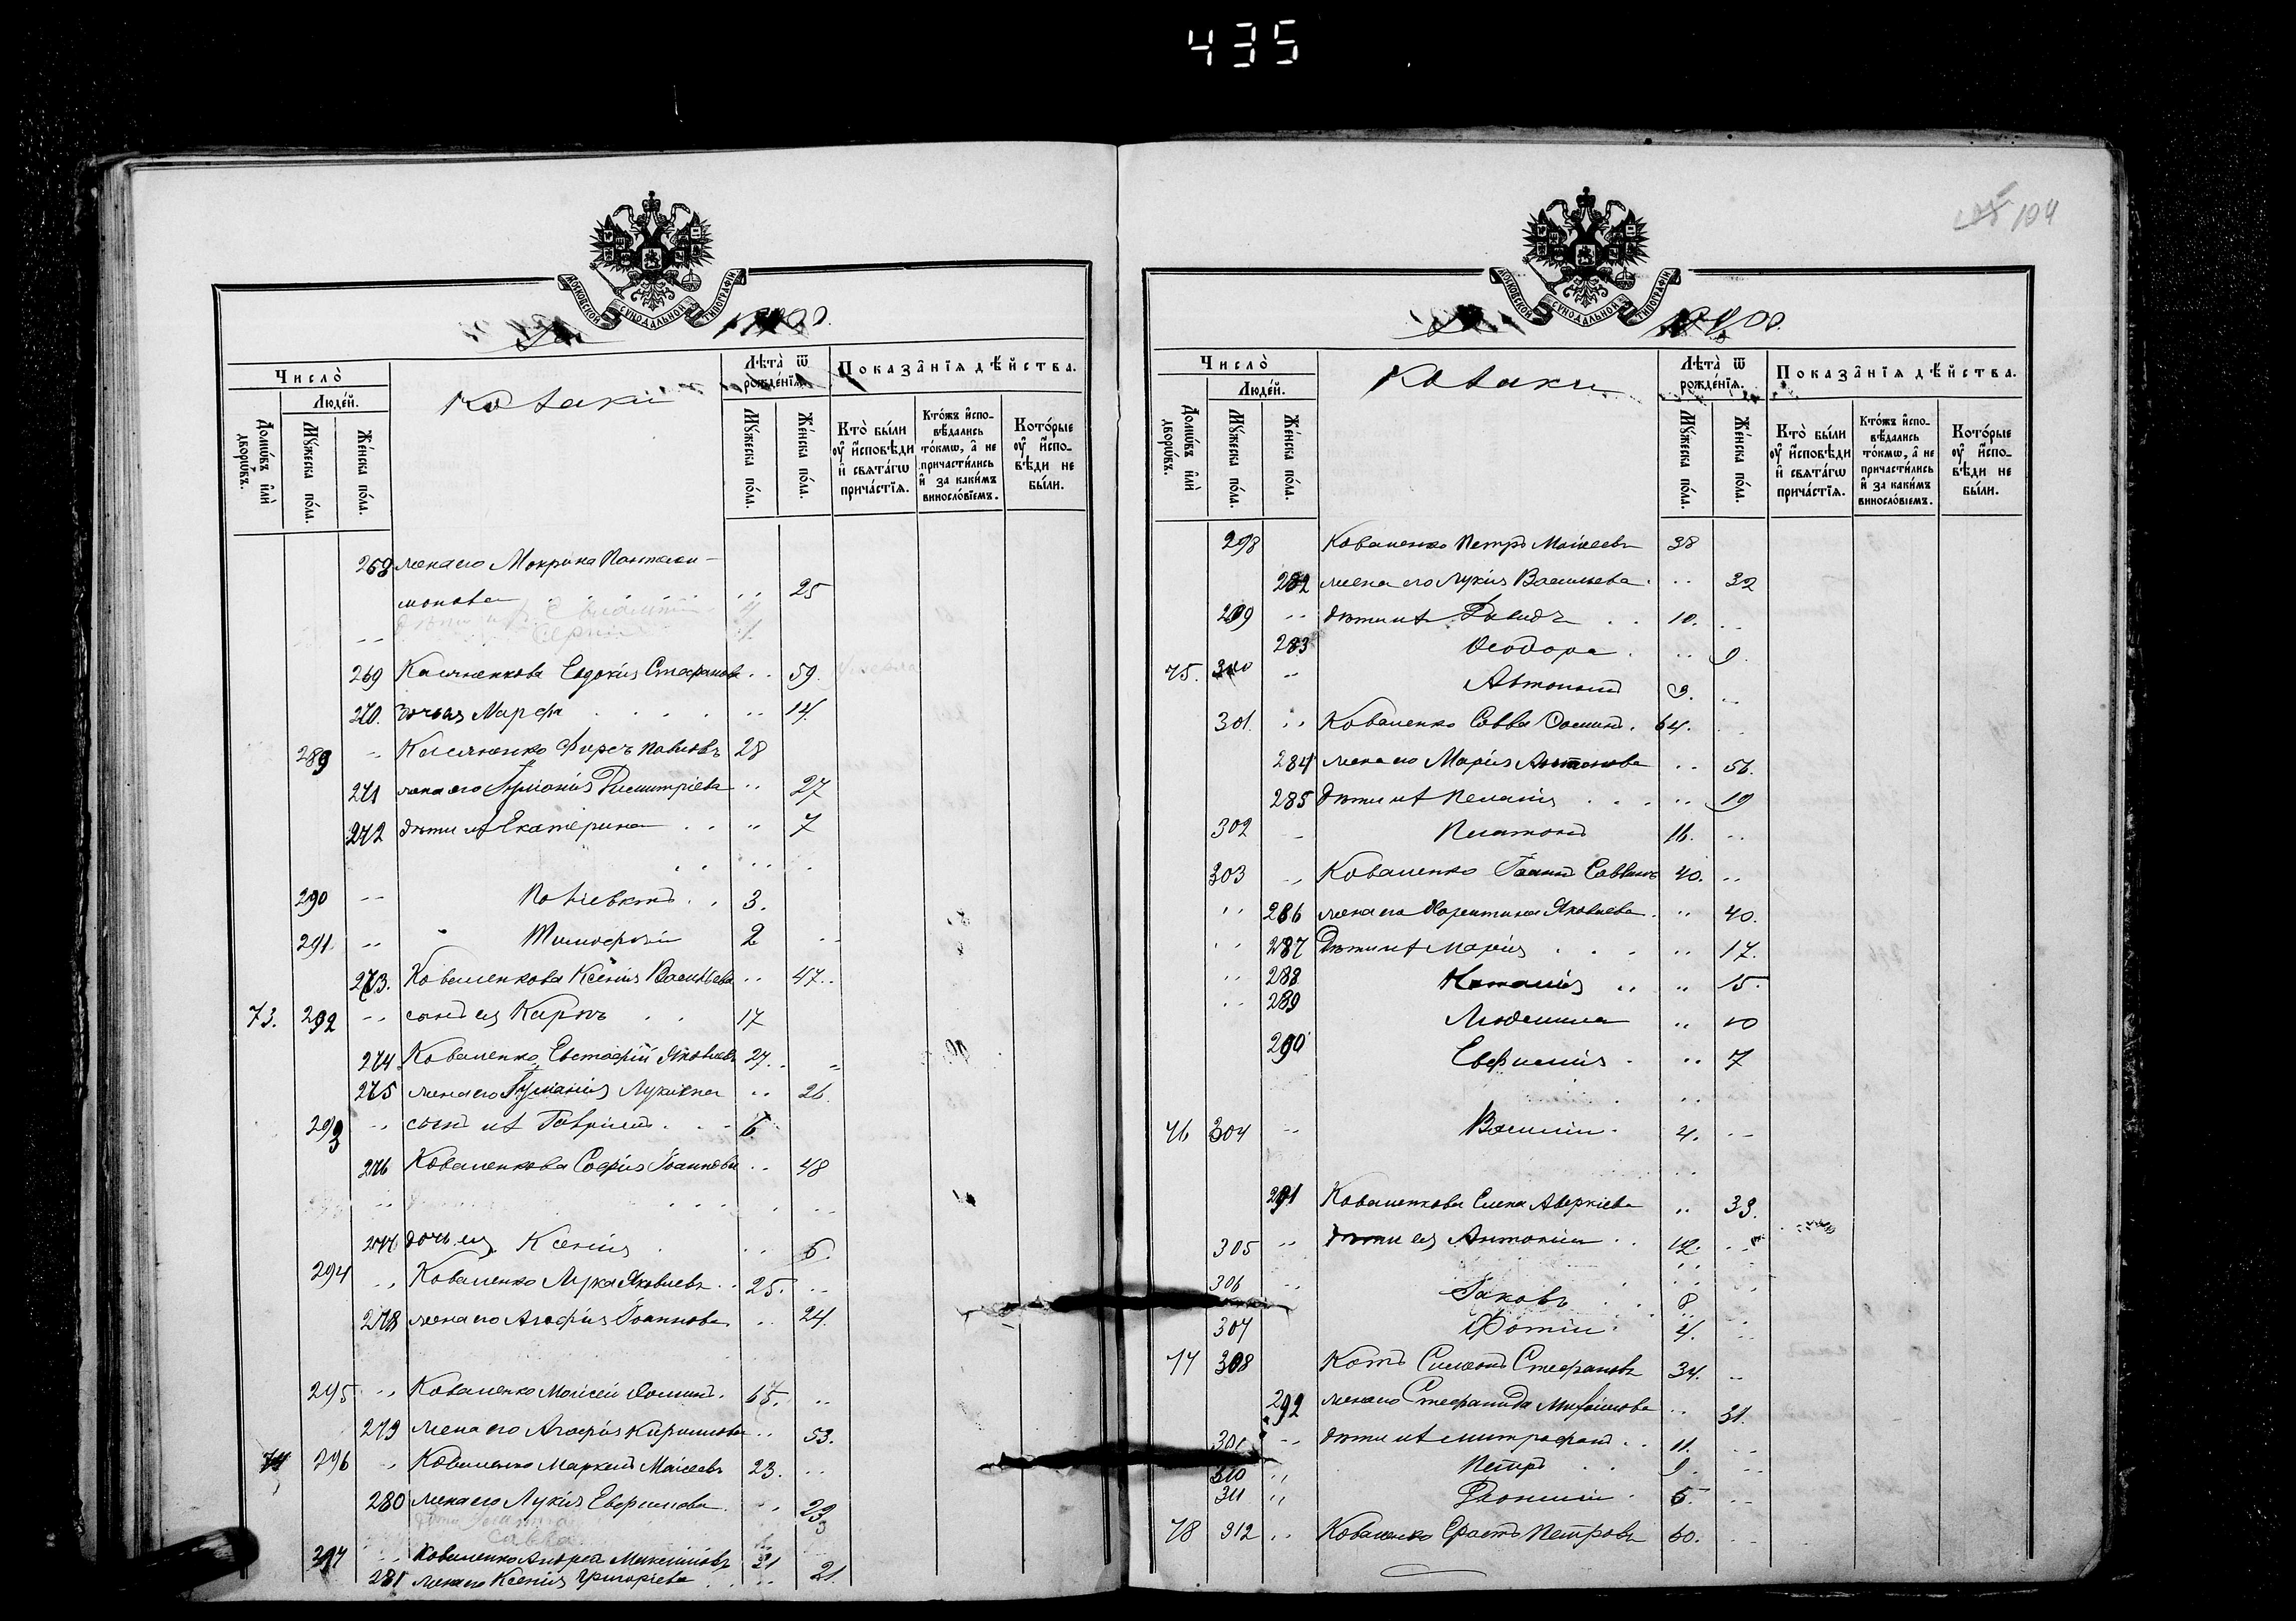 435
104
МОСКОВСКОЙ СѴНОДАЛЬНОЙ ТИПОГРАФІИ
Число̀
Людéй.
Домѡ́въ и҆лѝ дворѡ́въ.
Мꙋ́жеска по́ла.
Же́нска по́ла.
Козаки
Лѣта̀ ѿ рождéнїѧ.
Мꙋ́жеска по́ла.
Же́нска по́ла.
Показа̂нїѧ дѣ́йства.
Кто̀ бы́ли ᲂу҆ и҆сповѣди и҆ свѧта́гѡ прича́стїѧ.
Кто́жъ и҆спо-вѣдались то́кмѡ, а҆ не причасти́лись и҆ за каки́мъ винослóвїемъ.
Кото́рые ᲂу҆ и҆спо-вѣди не бы́ли.
268 жена его Мокрина Пантелеи-
монова .. 25
269 Касяненкова Евдокія Стефанова .. 59.
270. дочь ея Марфа .. 14.
289 Касяненко Фирсъ Павловъ 28
271 жена его Димитріева .. 27
272 дѣти ихъ Екатерина .. 7
290 3.
291. Тимофей 2
273. Коваленкова Ксенія Васильева .. 47..
73. 292 сынъ ея Карпъ 17
274. Коваленко Евстафій Яковлевъ 27..
275 жена его Лукина .. 26.
293 сынъ ихъ Гавріилъ 6.
276 Коваленкова Софія Іоаннова .. 48
277 дочь ея Ксенія .. 6.
294 Коваленко Лука Яковлевъ 25. ..
278 жена его Агафія Іоаннова .. 24.
295 Коваленко Моисей Фоминъ. 65. ..
279 жена его Агафія Кириллова .. 53.
74 296 Коваленко Маркелъ Моисеевъ 23. ..
280 жена его Лукія Евфимова .. 23
Савва
297 Коваленко Андрей 21
281 жена его Ксенія Григоріева .. 21.
МОСКОВСКОЙ СѴНОДАЛЬНОЙ ТИПОГРАФІИ
Число̀
Людéй.
Домѡ́въ и҆лѝ дворѡ́въ.
Мꙋ́жеска по́ла.
Же́нска по́ла.
Козаки
Лѣта̀ ѿ рождéнїѧ.
Мꙋ́жеска по́ла.
Же́нска по́ла.
Показа̂нїѧ дѣ́йства.
Кто̀ бы́ли ᲂу҆ и҆сповѣди и҆ свѧта́гѡ прича́стїѧ.
Кто́жъ и҆спо-вѣдались то́кмѡ, а҆ не причасти́лись и҆ за каки́мъ винослóвїемъ.
Кото́рые ᲂу҆ и҆спо-вѣди не бы́ли.
298 Коваленко Петръ Моисеевъ 38
282 жена его Лукія Васильева .. 32
299 дѣти ихъ Давидъ 10. ..
283 Ѳеодора .. 9.
75. 300 Автономъ 3. ..
301. Коваленко Савва Фоминъ. 64. ..
284 жена его Марія Антонова .. 56.
285 дѣти ихъ Пелагія .. 19
302 Платонъ 16. ..
303 Коваленко Іоаннъ Саввинъ 40. ..
286 жена его Харитина Яковлева .. 40.
287 Дѣти ихъ Марія .. 17.
288 Наталія .. 15.
289 Людмила .. 10
290 Евфимія .. 7
76 304 Василій 4. ..
291 Коваленкова Елена Аверкіева .. 33.
305 дѣти ея Антоній 12. ..
306 Іаковъ 8
307 Фотій 4.
77 308 Котъ Симеонъ Стефановъ 34. ..
292 жена его Стефанида Михайлова .. 31.
дѣти ихъ Митрофанъ 11. ..
310 Петръ 9. ..
311 5. ..
78 312 Коваленко Ерастъ Петровъ 60. ..